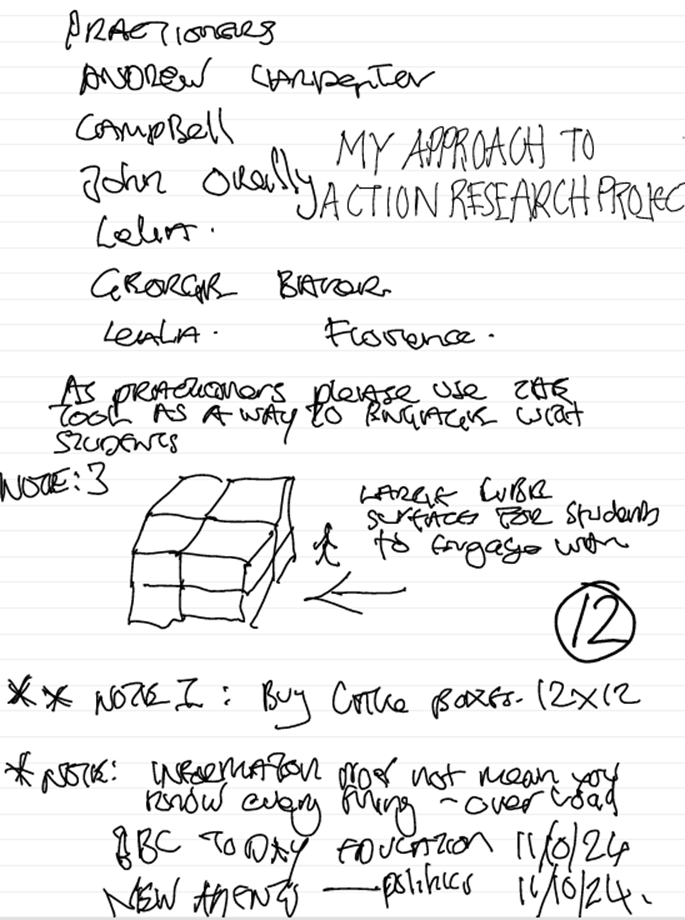 PRACTIONERS
ANDREW CARPENTER
CAMPBELL
John OReilly
MY APPROACH TO
ACTION RESEARCH PROJEC
GEORGE
Florence.
AS PRACTIONERS please use THE
TOOL AS A WAY TO ENGAGE WITH
STUDENTS
NOTE: 3
LARGE CUBE
SURFACES FOR Students
to Engage with
12
** NOTE I : Buy BOXES. 12X12
* NOTE: INFORMATION DOES not mean you
know every thing - over load
BBC TODAY EDUCATION 11/0/24
NEW — politics 11/10/24.